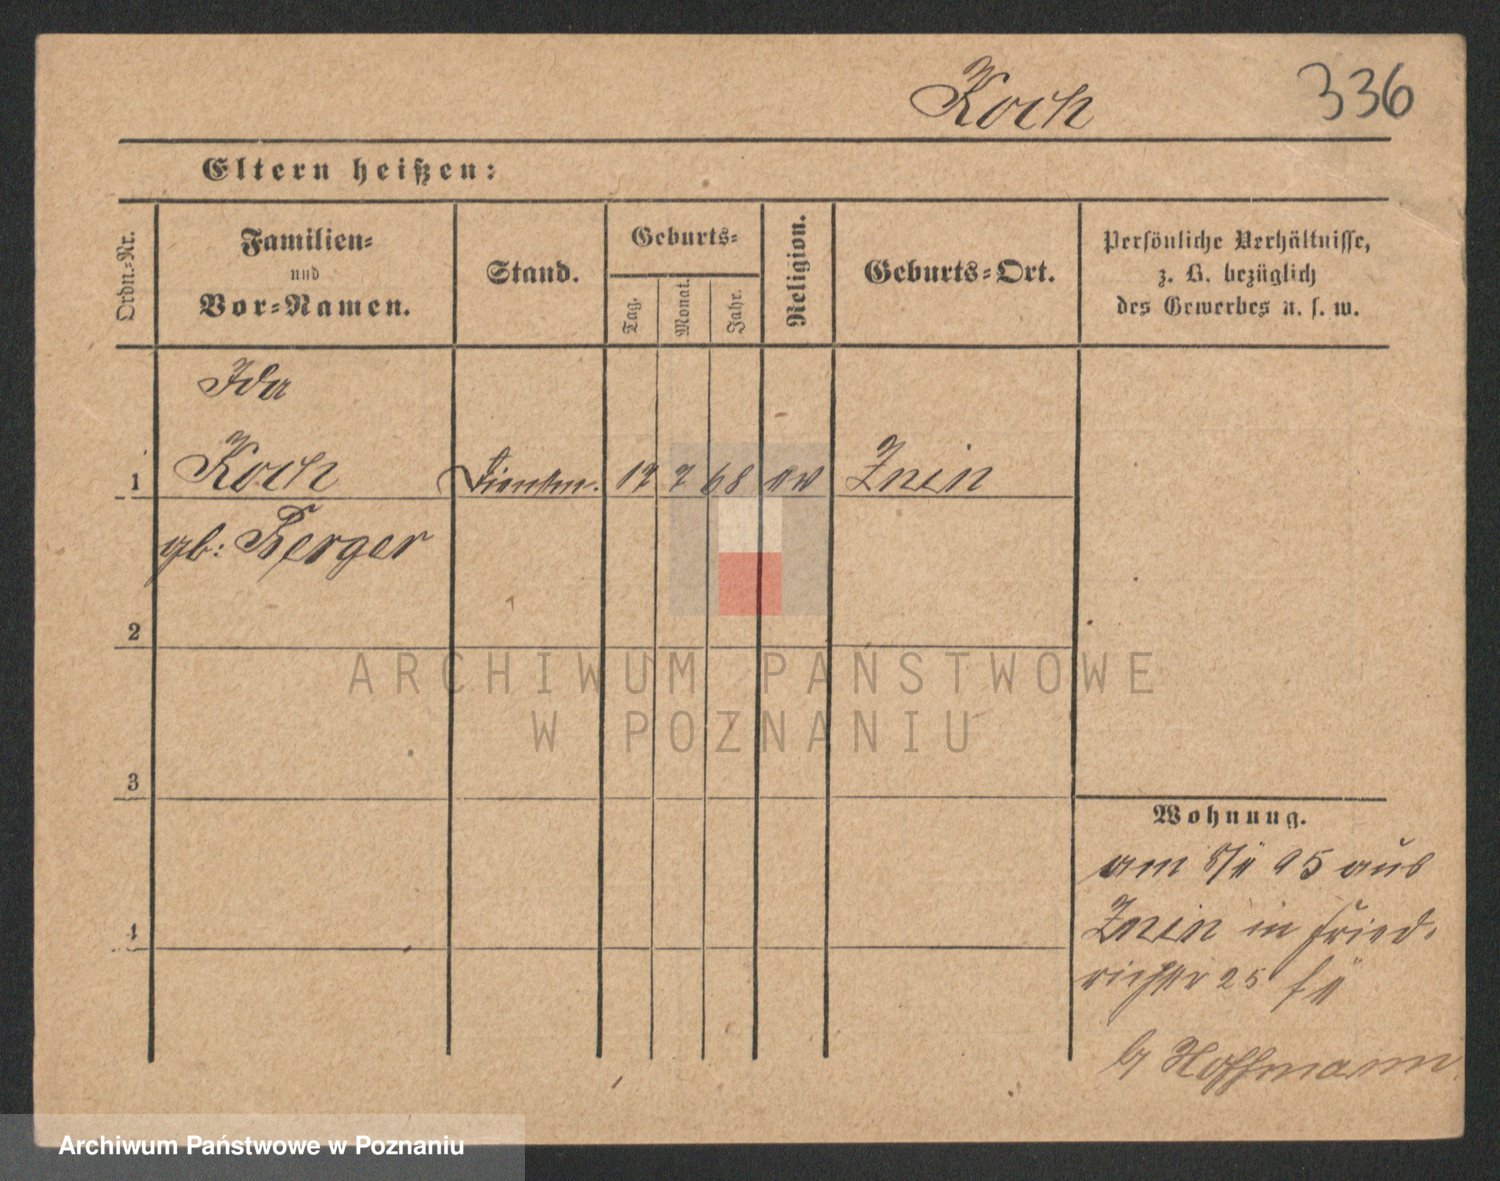 Koch
336
Eltern heißen:
Ordn.-Nr.
Familien-
und
Vor-Namen.
Stand.
Geburts-
Tag.
Monat.
Jahr.
Religion.
Geburts-Ort.
Persönliche Verhältnisse,
z. B. bezüglich
des Gewerbes u. s. w.
Ida
1 Koch 17 7 68 ev Znin
gb: Berger
2
3
4
Wohnung.
am 8/11 95 aus
Znin in Fried-
richstr 25
b/ Hoffmann
ARCHIWUM PAŃSTWOWE
W POZNANIU
Archiwum Państwowe w Poznaniu